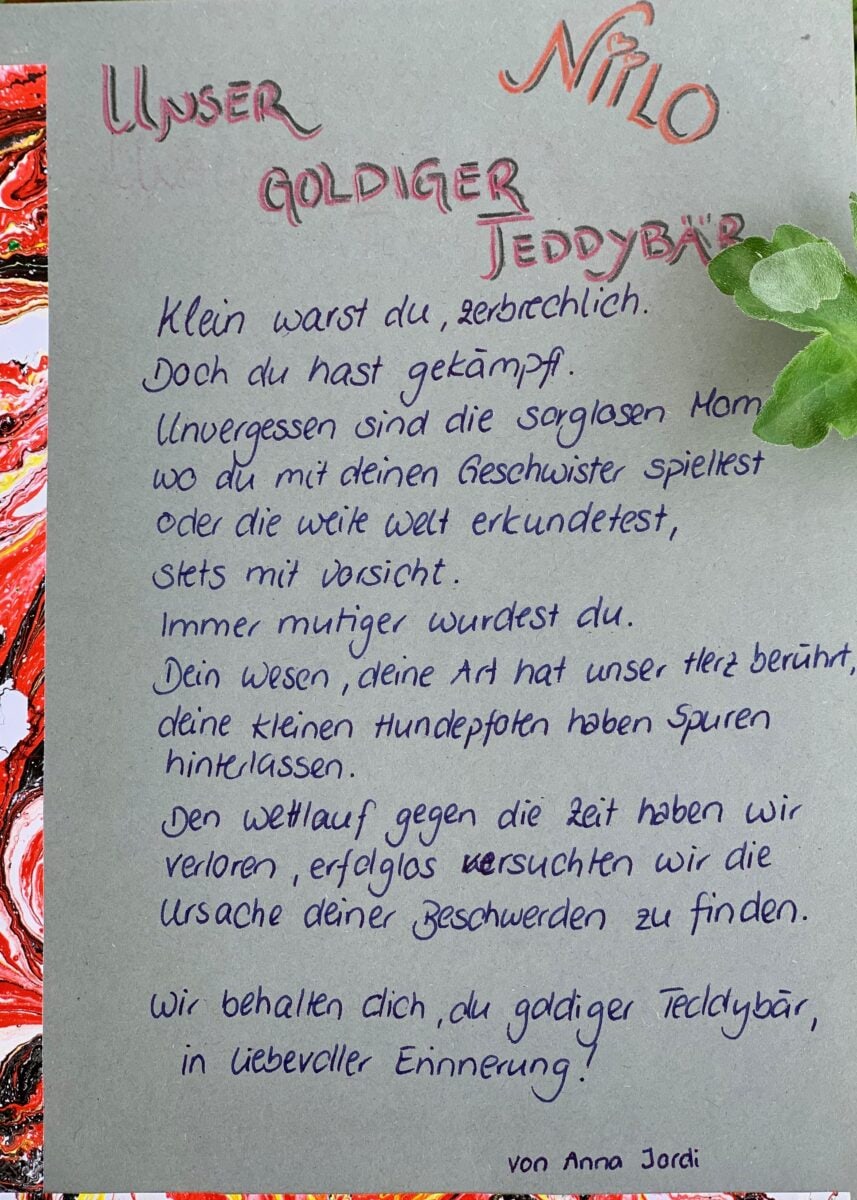 Niilo
UNSER
GOLDIGER
TEDDYBÄR
Klein warst du, zerbrechlich.
Doch du hast gekämpft.
Unvergessen sind die sorglosen Mom
wo du mit deinen Geschwister spieltest
oder die weite welt erkundetest,
stets mit vorsicht.
Immer mutiger wurdest du.
Dein Wesen, deine Art hat unser Herz berührt,
deine kleinen Hundepfoten haben Spuren
hinterlassen.
Den Wettlauf gegen die Zeit haben wir
verloren, erfolglos versuchten wir die
Ursache deiner Beschwerden zu finden.
Wir behalten dich, du goldiger Teddybär,
in liebevoller Erinnerung!
von Anna Jordi